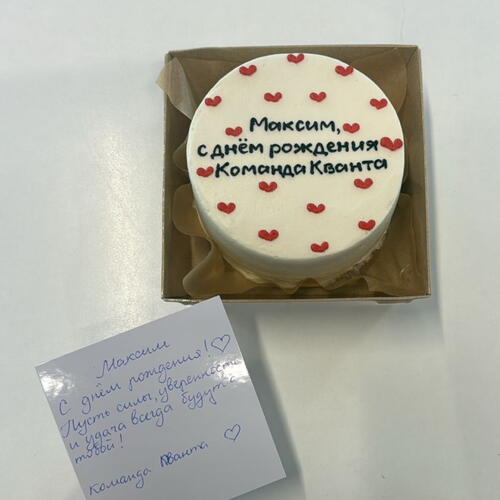 Максим,
с днём рождения
Команда Кванта
Максим
С днём рождения!
Пусть силы, уверенность
и удача всегда будут с
тобой!
Команда Кванта